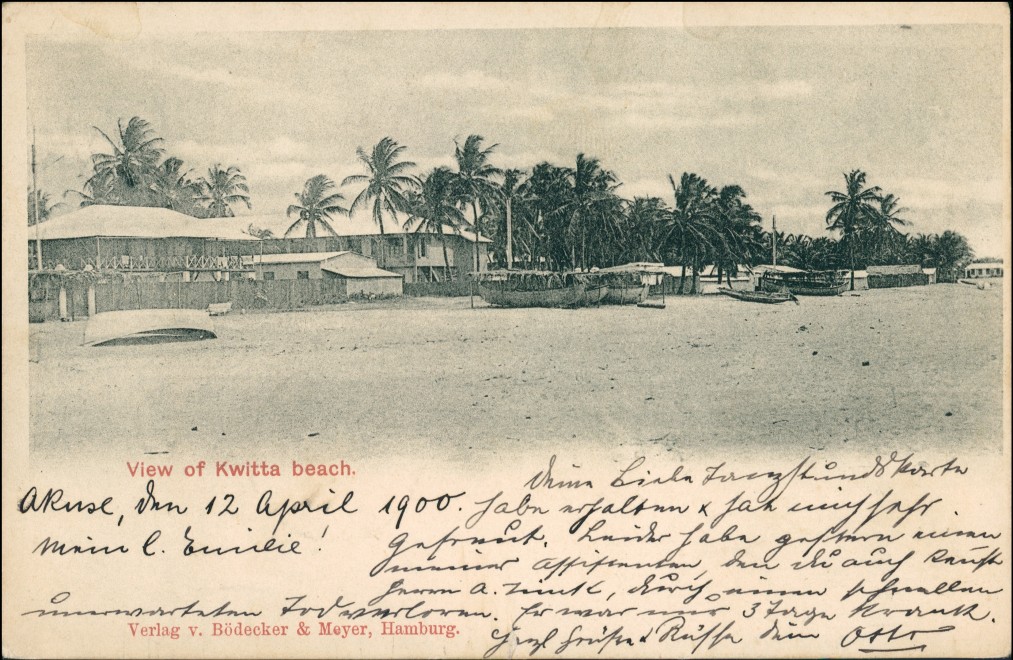 View of Kwitta beach.
Akuse, den 12 April 1900.
Mein l. Emilie!
Deine Liebe Tanzstundskarte
habe erhalten & hat mich sehr
gefreut. Leider habe gestern einen
meiner Assistenten, den Du auch kennst
Herrn A. Zink, durch einen schnellen
unerwarteten Tod verloren. Er war nur 3 Tage krank.
Herzl Grüße & Küsse Dein Otto
Verlag v. Bödecker & Meyer, Hamburg.